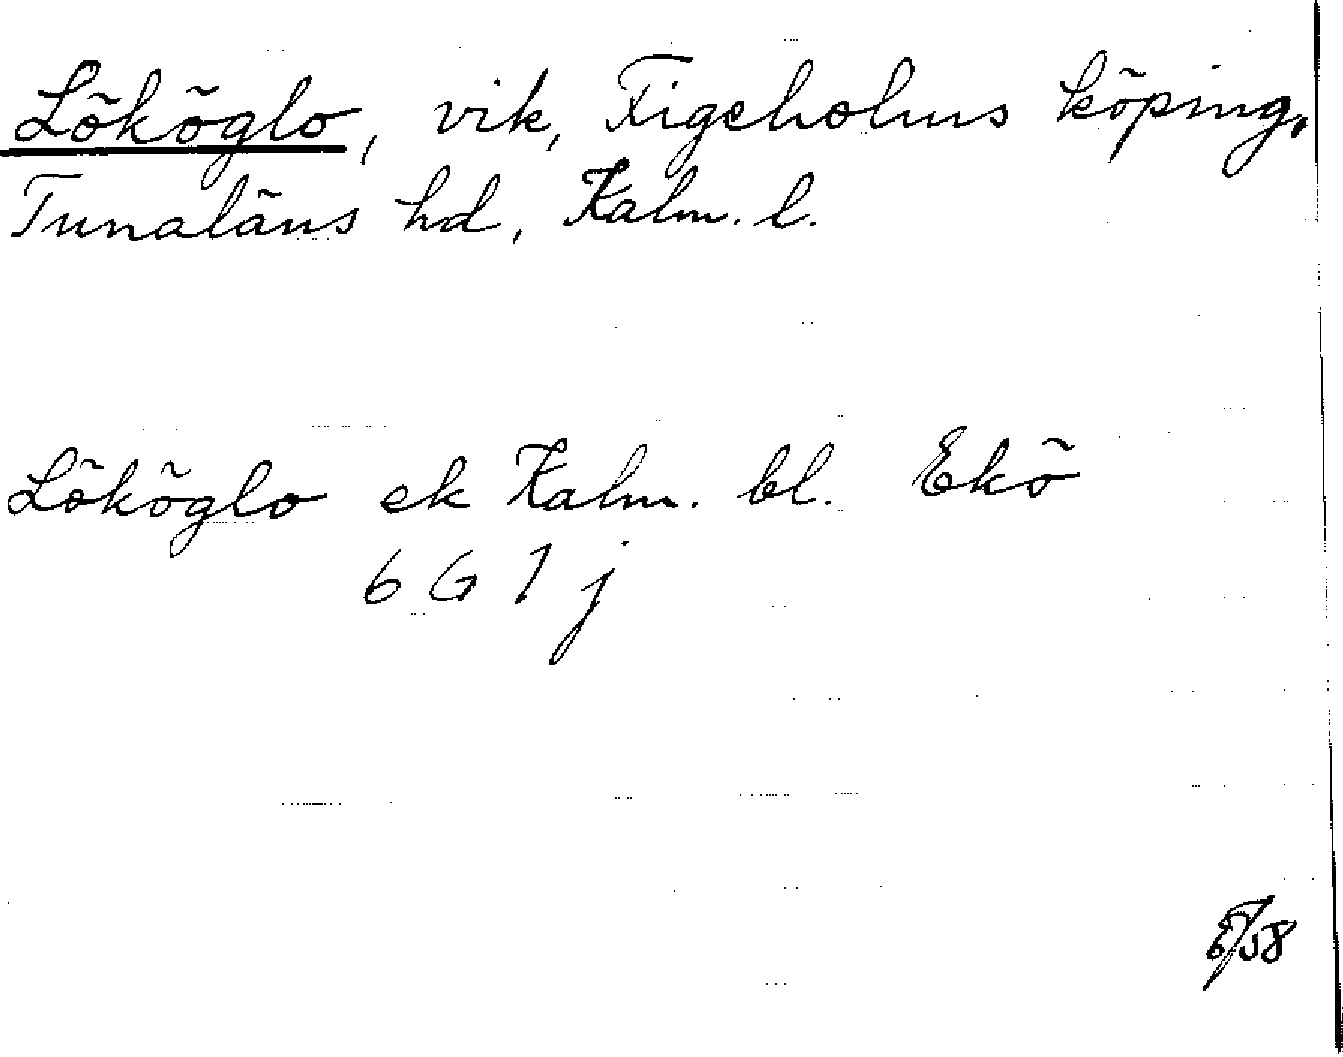 Lököglo, vik, Figeholms köping,
Tunaläns hd, Kalm. l.
Lököglo ek Kalm. bl. Ekö
6 G 1 j